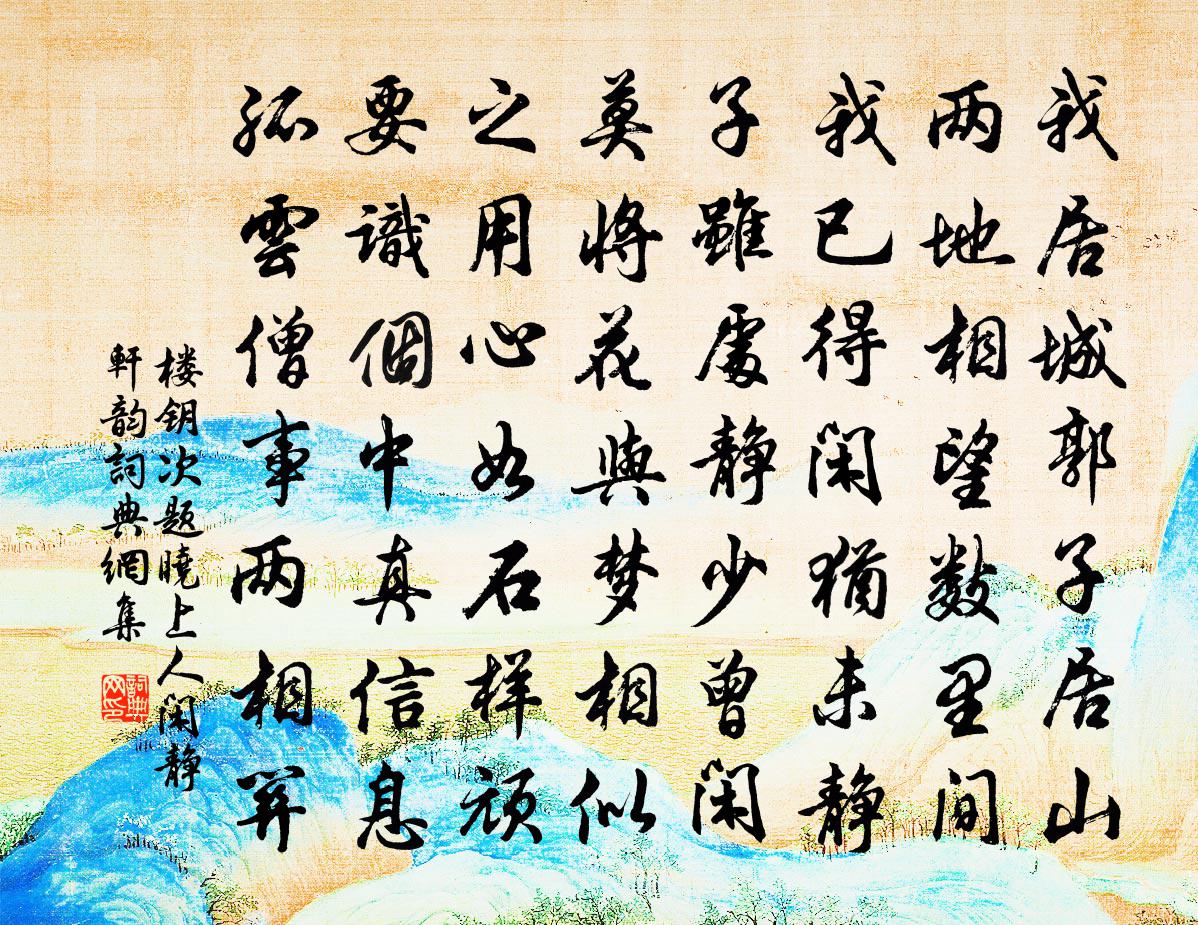 我居城郭子居山
两地相望数里间
我已得闲猶未静
子雖處静少曾闲
莫将花與梦相似
之用心如石样顽
要識個中真信息
孤雲僧事两相关
楼钥次题曉上人闲静
軒韵詞典網集
詞典网印